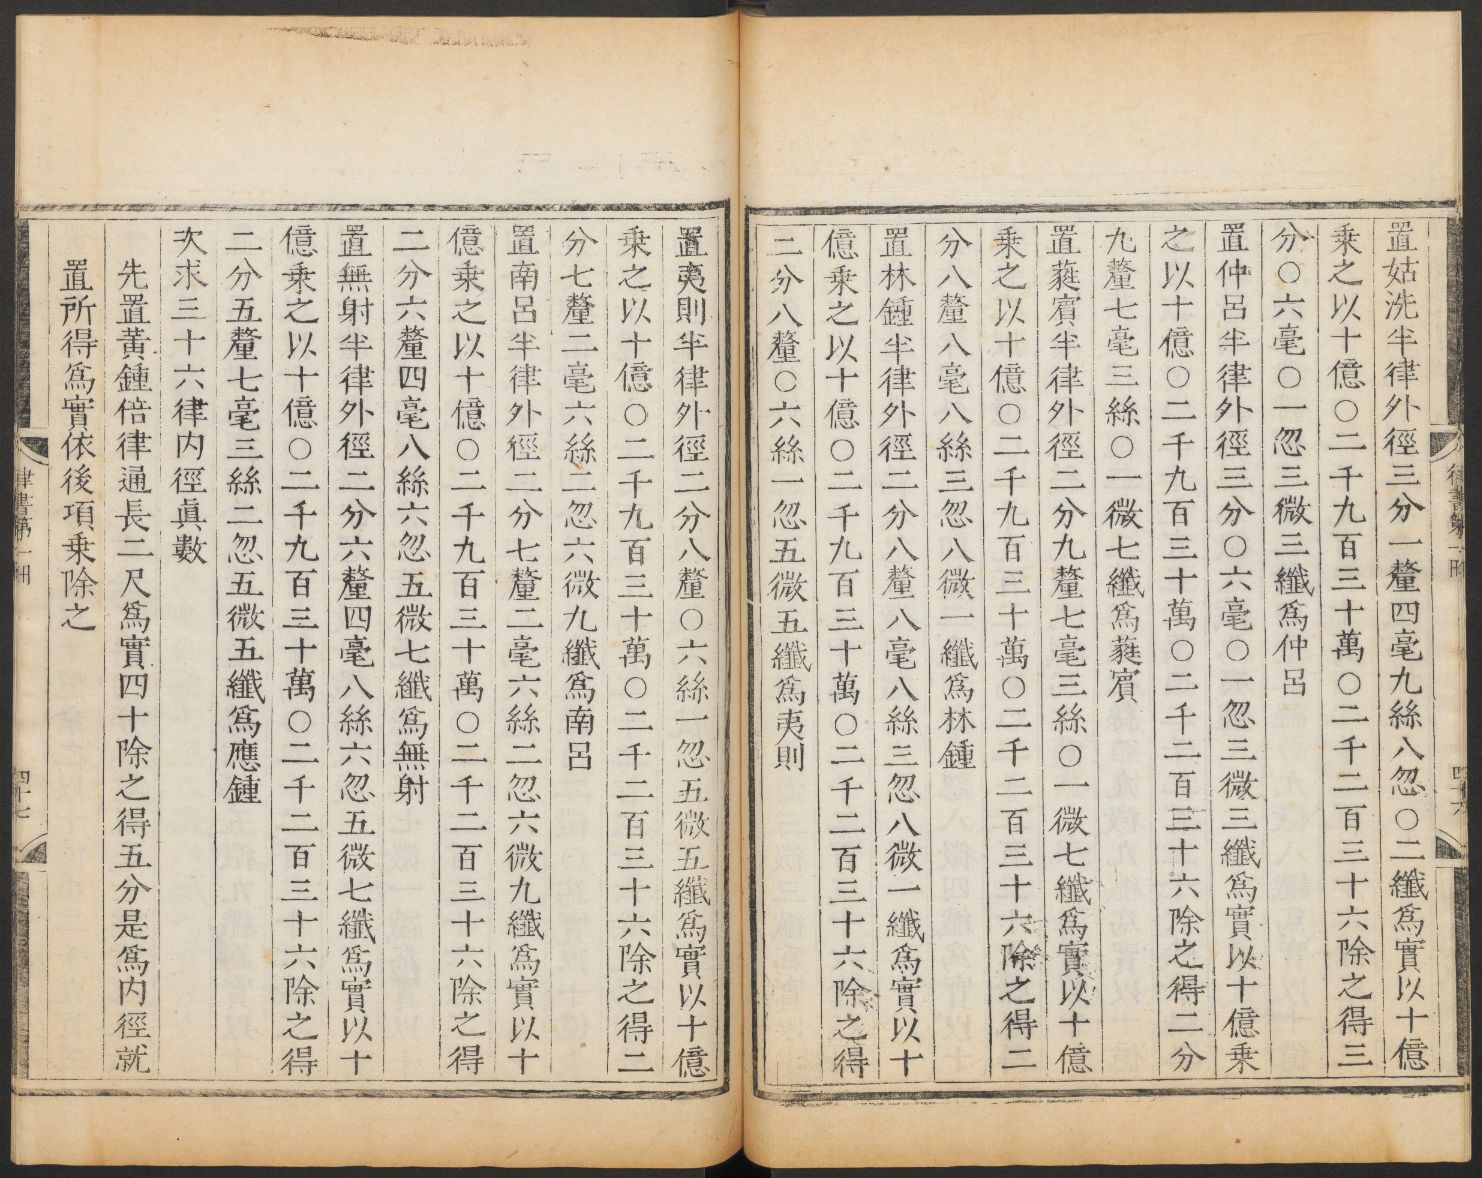 置姑洗半律外徑三分一釐四毫九絲八忽〇二纖爲實以十億
乘之以十億〇二千九百三十萬〇二千二百三十六除之得三
分〇六毫〇一忽三微三纖爲仲呂
置仲呂半律外徑三分〇六毫〇一忽三微三纖爲實以十億乘
之以十億〇二千九百三十萬〇二千二百三十六除之得二分
九釐七毫三絲〇一微七纖爲蕤賓
置蕤賓半律外徑二分九釐七毫三絲〇一微七纖爲實以十億
乘之以十億〇二千九百三十萬〇二千二百三十六除之得二
分八釐八毫八絲三忽八微一纖爲林鍾
置林鍾半律外徑二分八釐八毫八絲三忽八微一纖爲實以十
億乘之以十億〇二千九百三十萬〇二千二百三十六除之得
二分八釐〇六絲一忽五微五纖爲夷則
律書第一冊
四十六
置夷則半律外徑二分八釐〇六絲一忽五微五纖爲實以十億
乘之以十億〇二千九百三十萬〇二千二百三十六除之得二
分七釐二毫六絲二忽六微九纖爲南呂
置南呂半律外徑二分七釐二毫六絲二忽六微九纖爲實以十
億乘之以十億〇二千九百三十萬〇二千二百三十六除之得
二分六釐四毫八絲六忽五微七纖爲無射
置無射半律外徑二分六釐四毫八絲六忽五微七纖爲實以十
億乘之以十億〇二千九百三十萬〇二千二百三十六除之得
二分五釐七毫三絲二忽五微五纖爲應鍾
次求三十六律內徑眞數
先置黃鍾倍律通長二尺爲實四十除之得五分是爲內徑就
置所得爲實依後項乘除之
律書第一冊
四十七